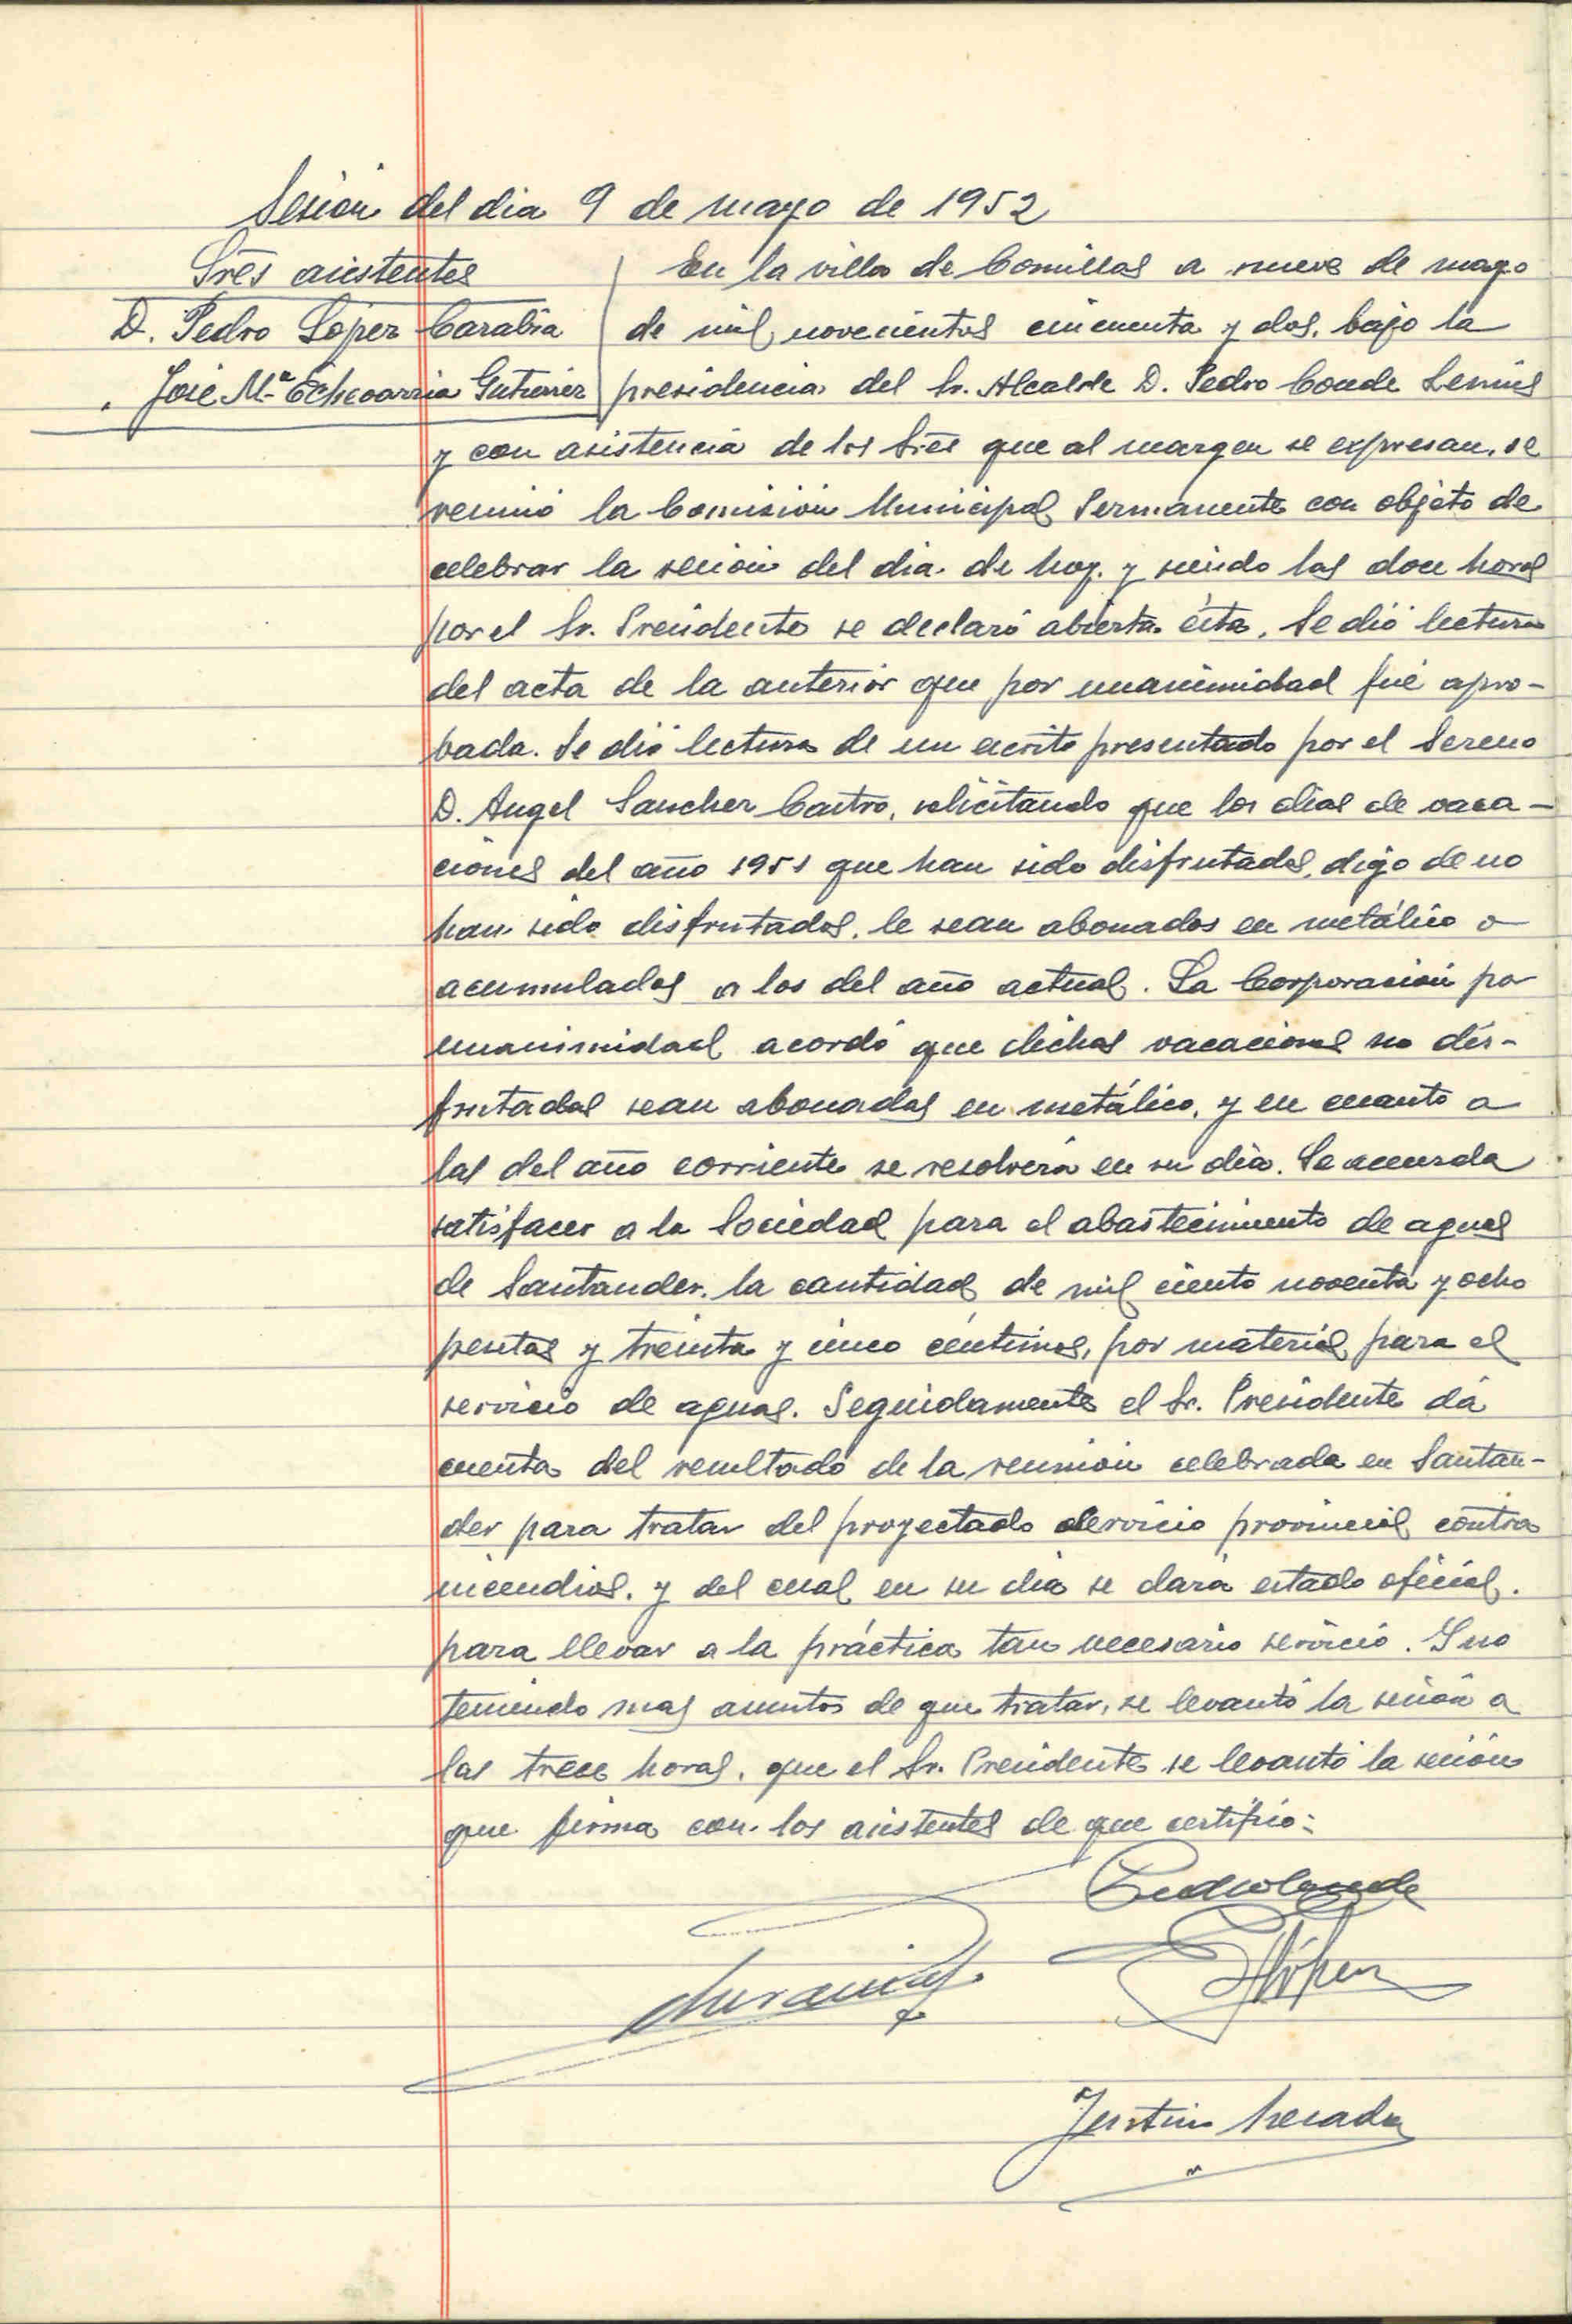 Sesion del dia 9 de mayo de 1952
Sres asistentes
D. Pedro Lopez Carabia
" José Mª Echevarria Gutierrez
En la villa de Comillas a nueve de mayo
de mil novecientos cincuenta y dos, bajo la
presidencia del Sr. Alcalde D. Pedro Conde
y con asistencia de los Sres que al margen se expresan, se
reunió la Comisión Municipal Permanente con objeto de
celebrar la sesión del dia de hoy, y siendo las doce horas
por el Sr. Presidente se declaró abierta ésta. Se dió lectura
del acta de la anterior que por unanimidad fué apro-
bada. Se dió lectura de un escrito presentado por el Sereno
D. Angel Sanchez Castro, solicitando que los dias de vaca-
ciones del año 1951 que han sido disfrutados, digo de no
han sido disfrutados, le sean abonados en metálico o
acumulados a los del año actual. La Corporación por
unanimidad acordó que dichas vacaciones no dis-
frutadas sean abonadas en metálico, y en cuanto a
las del año corriente se resolverá en su dia. Se acuerda
satisfacer a la Sociedad para el abastecimiento de aguas
de Santander, la cantidad de mil ciento noventa y ocho
pesetas y treinta y cinco céntimos, por material para el
servicio de aguas. Seguidamente el Sr. Presidente dá
cuenta del resultado de la reunión celebrada en Santan-
der para tratar del proyectado servicio provincial contra
incendios, y del cual en su dia se dará estado oficial,
para llevar a la práctica tan necesario servicio. Y no
teniendo mas asuntos de que tratar, se levantó la sesión a
las trece horas, que el Sr. Presidente se levantó la sesión
que firma con los asistentes de que certifico:
Pedro Conde
López
Justino